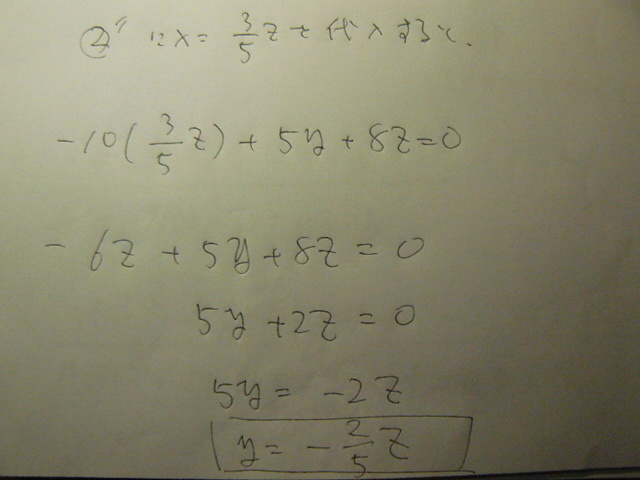 ②" に x = 3/5 z を代入すると.
-10(3/5 z) + 5y + 8z = 0
- 6z + 5y + 8z = 0
5y + 2z = 0
5y = -2z
y = - 2/5 z